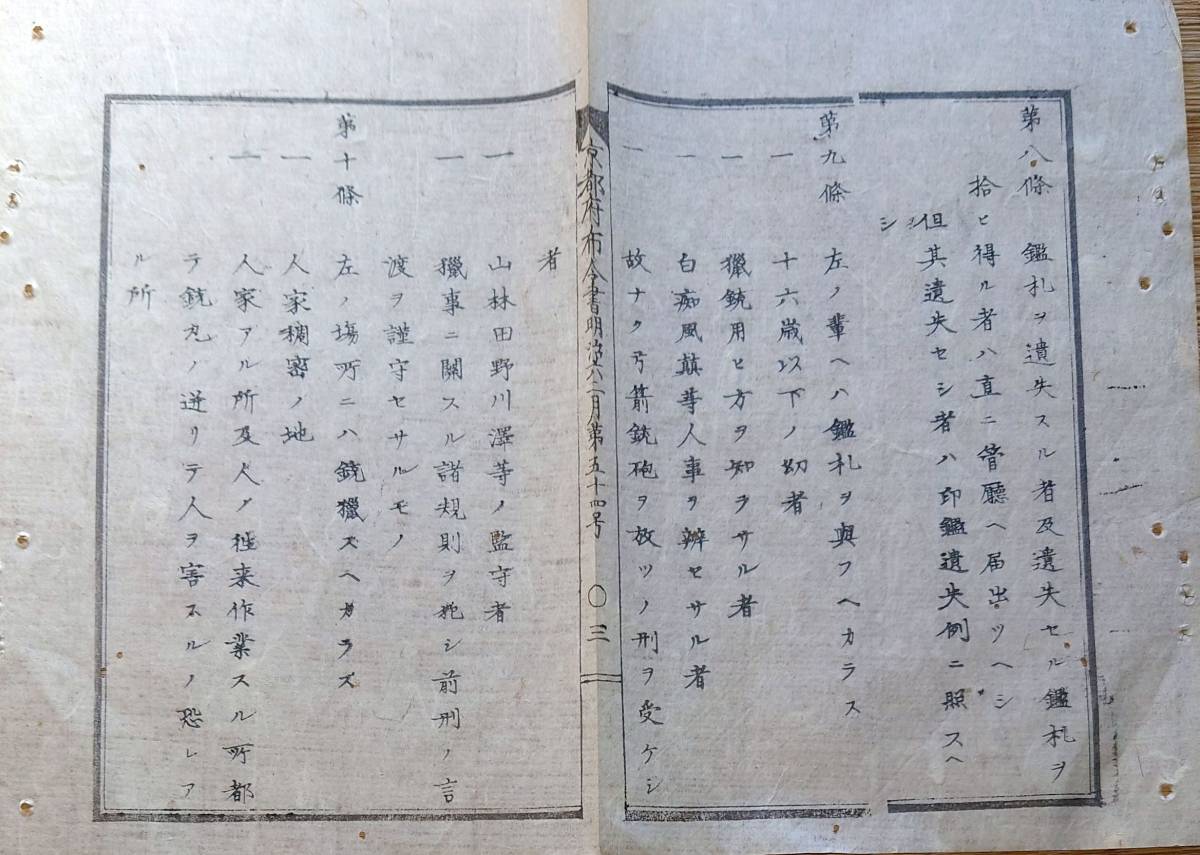 第八條　鑑札ヲ遺失スル者及遺失セル鑑札ヲ
拾ヒ得ル者ハ直ニ管廳ヘ届出ツヘシ
但其遺失セシ者ハ印鑑遺失例ニ照スヘ
シ
第九條　左ノ輩ヘハ鑑札ヲ與フヘカラス
一　十六歳以下ノ幼者
一　獵銃用ヒ方ヲ知ラサル者
一　白痴風癲等人事ヲ辨セサル者
一　故ナク弓箭銃砲ヲ放ツノ刑ヲ受ケシ
京都府布令書明治六二月第五十四号　〇三
者
一　山林田野川澤等ノ監守者
一　獵事ニ關スル諸規則ヲ犯シ前刑ノ言
渡ヲ謹守セサルモノ
第十條　左ノ塲所ニハ銃獵スヘカラズ
一　人家稠密ノ地
一　人家アル所及人ノ徃来作業スル所都
テ銃丸ノ迸リテ人ヲ害スルノ恐レア
ル所